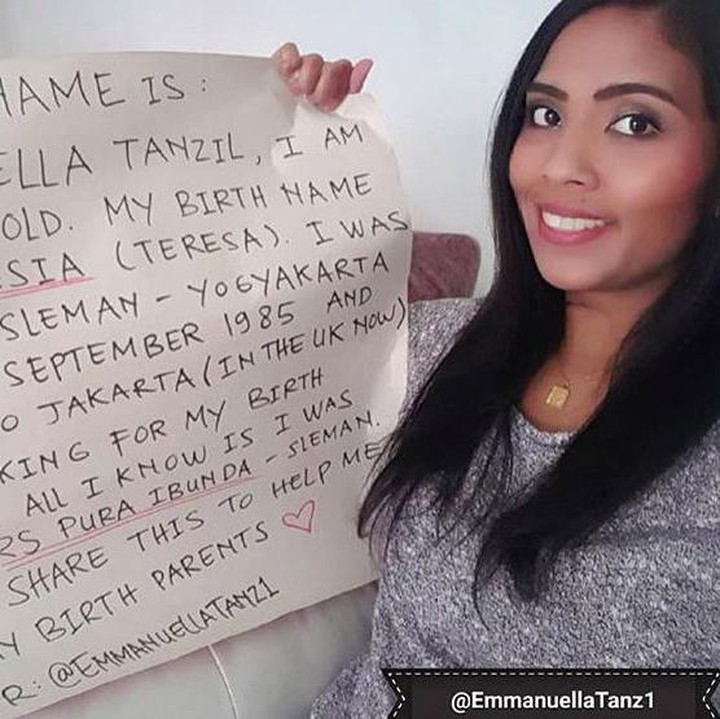 NAME IS:
ELLA TANZIL, I AM
OLD. MY BIRTH NAME
SIA (TERESA). I WAS
SLEMAN - YOGYAKARTA
SEPTEMBER 1985 AND
O JAKARTA (IN THE UK NOW)
KING FOR MY BIRTH
ALL I KNOW IS I WAS
RS PURA IBUNDA - SLEMAN.
SHARE THIS TO HELP ME
Y BIRTH PARENTS
R: @EMMANUELLATANZ1
@EmmanuellaTanz1